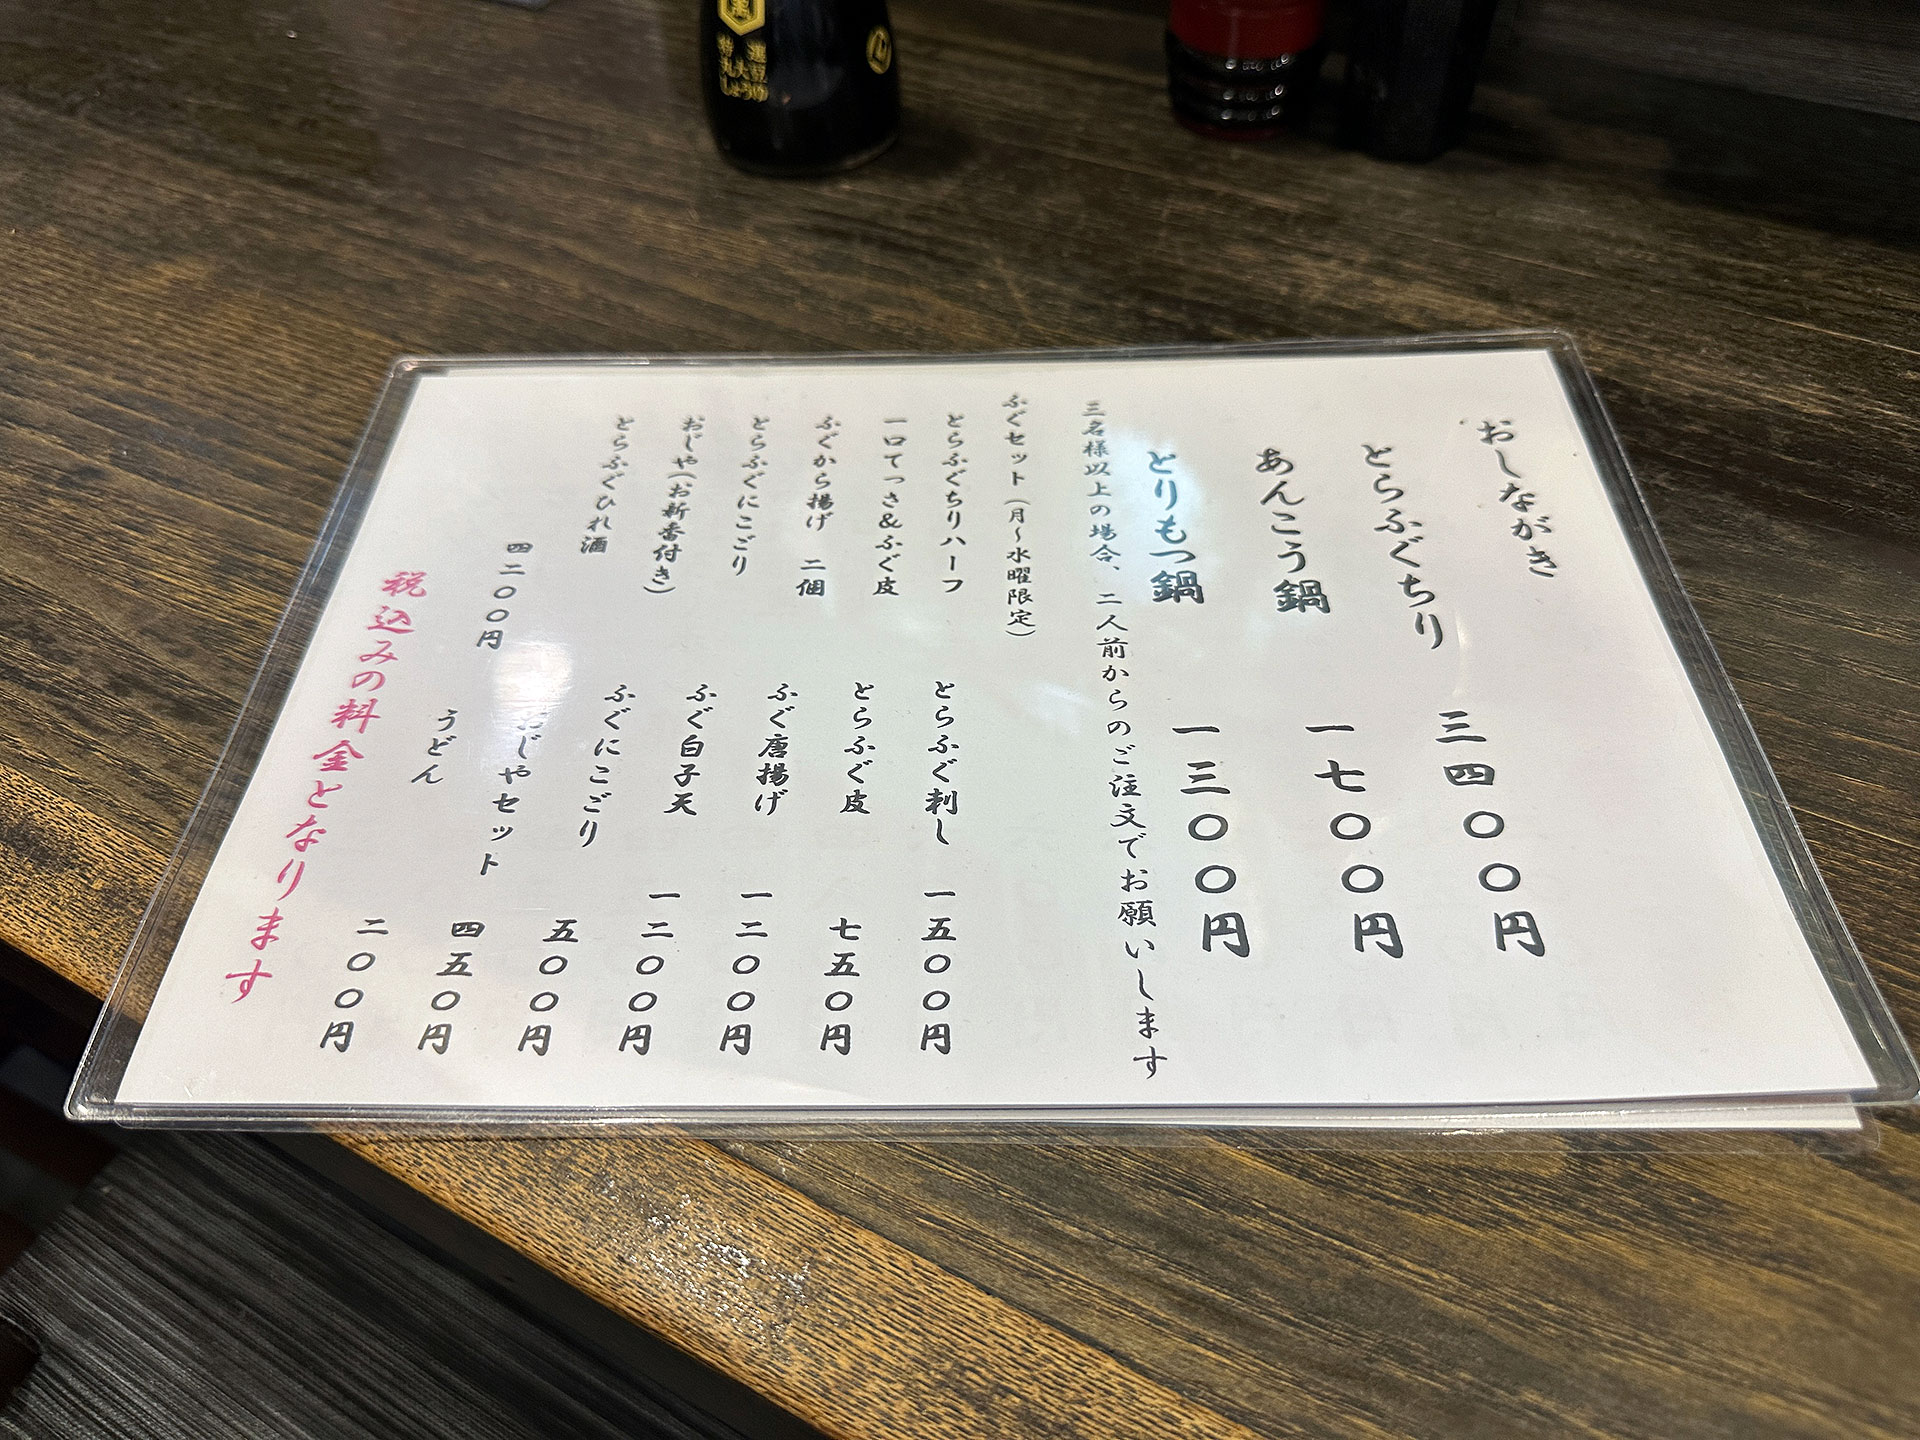 おしながき
とらふぐちり 三四〇〇円
あんこう鍋 一七〇〇円
とりもつ鍋 一三〇〇円
三名様以上の場合、二人前からのご注文でお願いします
ふぐセット(月～水曜限定)
とらふぐちりハーフ
一口てっさ&ふぐ皮
ふぐから揚げ 二個
とらふぐにこごり
おじや(お新香付き)
とらふぐひれ酒
四二〇〇円
とらふぐ刺し 一五〇〇円
とらふぐ皮 七五〇円
ふぐ唐揚げ 一二〇〇円
ふぐ白子天 一二〇〇円
ふぐにこごり 五〇〇円
おじやセット 四五〇円
うどん 二〇〇円
税込みの料金となります
選豆
特 大
丸 しょうゆ